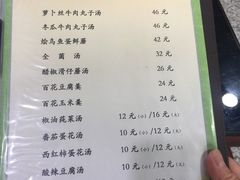 萝卜丝牛肉丸子汤 46 元
冬瓜牛肉丸子汤 46 元
烩乌鱼蛋鲜蘑 42 元
全菌汤 32 元
醋椒滑仔蘑汤 26 元
百花豆腐羹 24 元
百花玉米羹 24 元
椒油莼菜汤 12 元(小)/16 元(大)
番茄蛋花汤 10 元(小)/12 元(大)
西红柿蛋花汤 10 元(小)/12 元(大)
酸辣豆腐汤 10 元(小)/12 元(大)